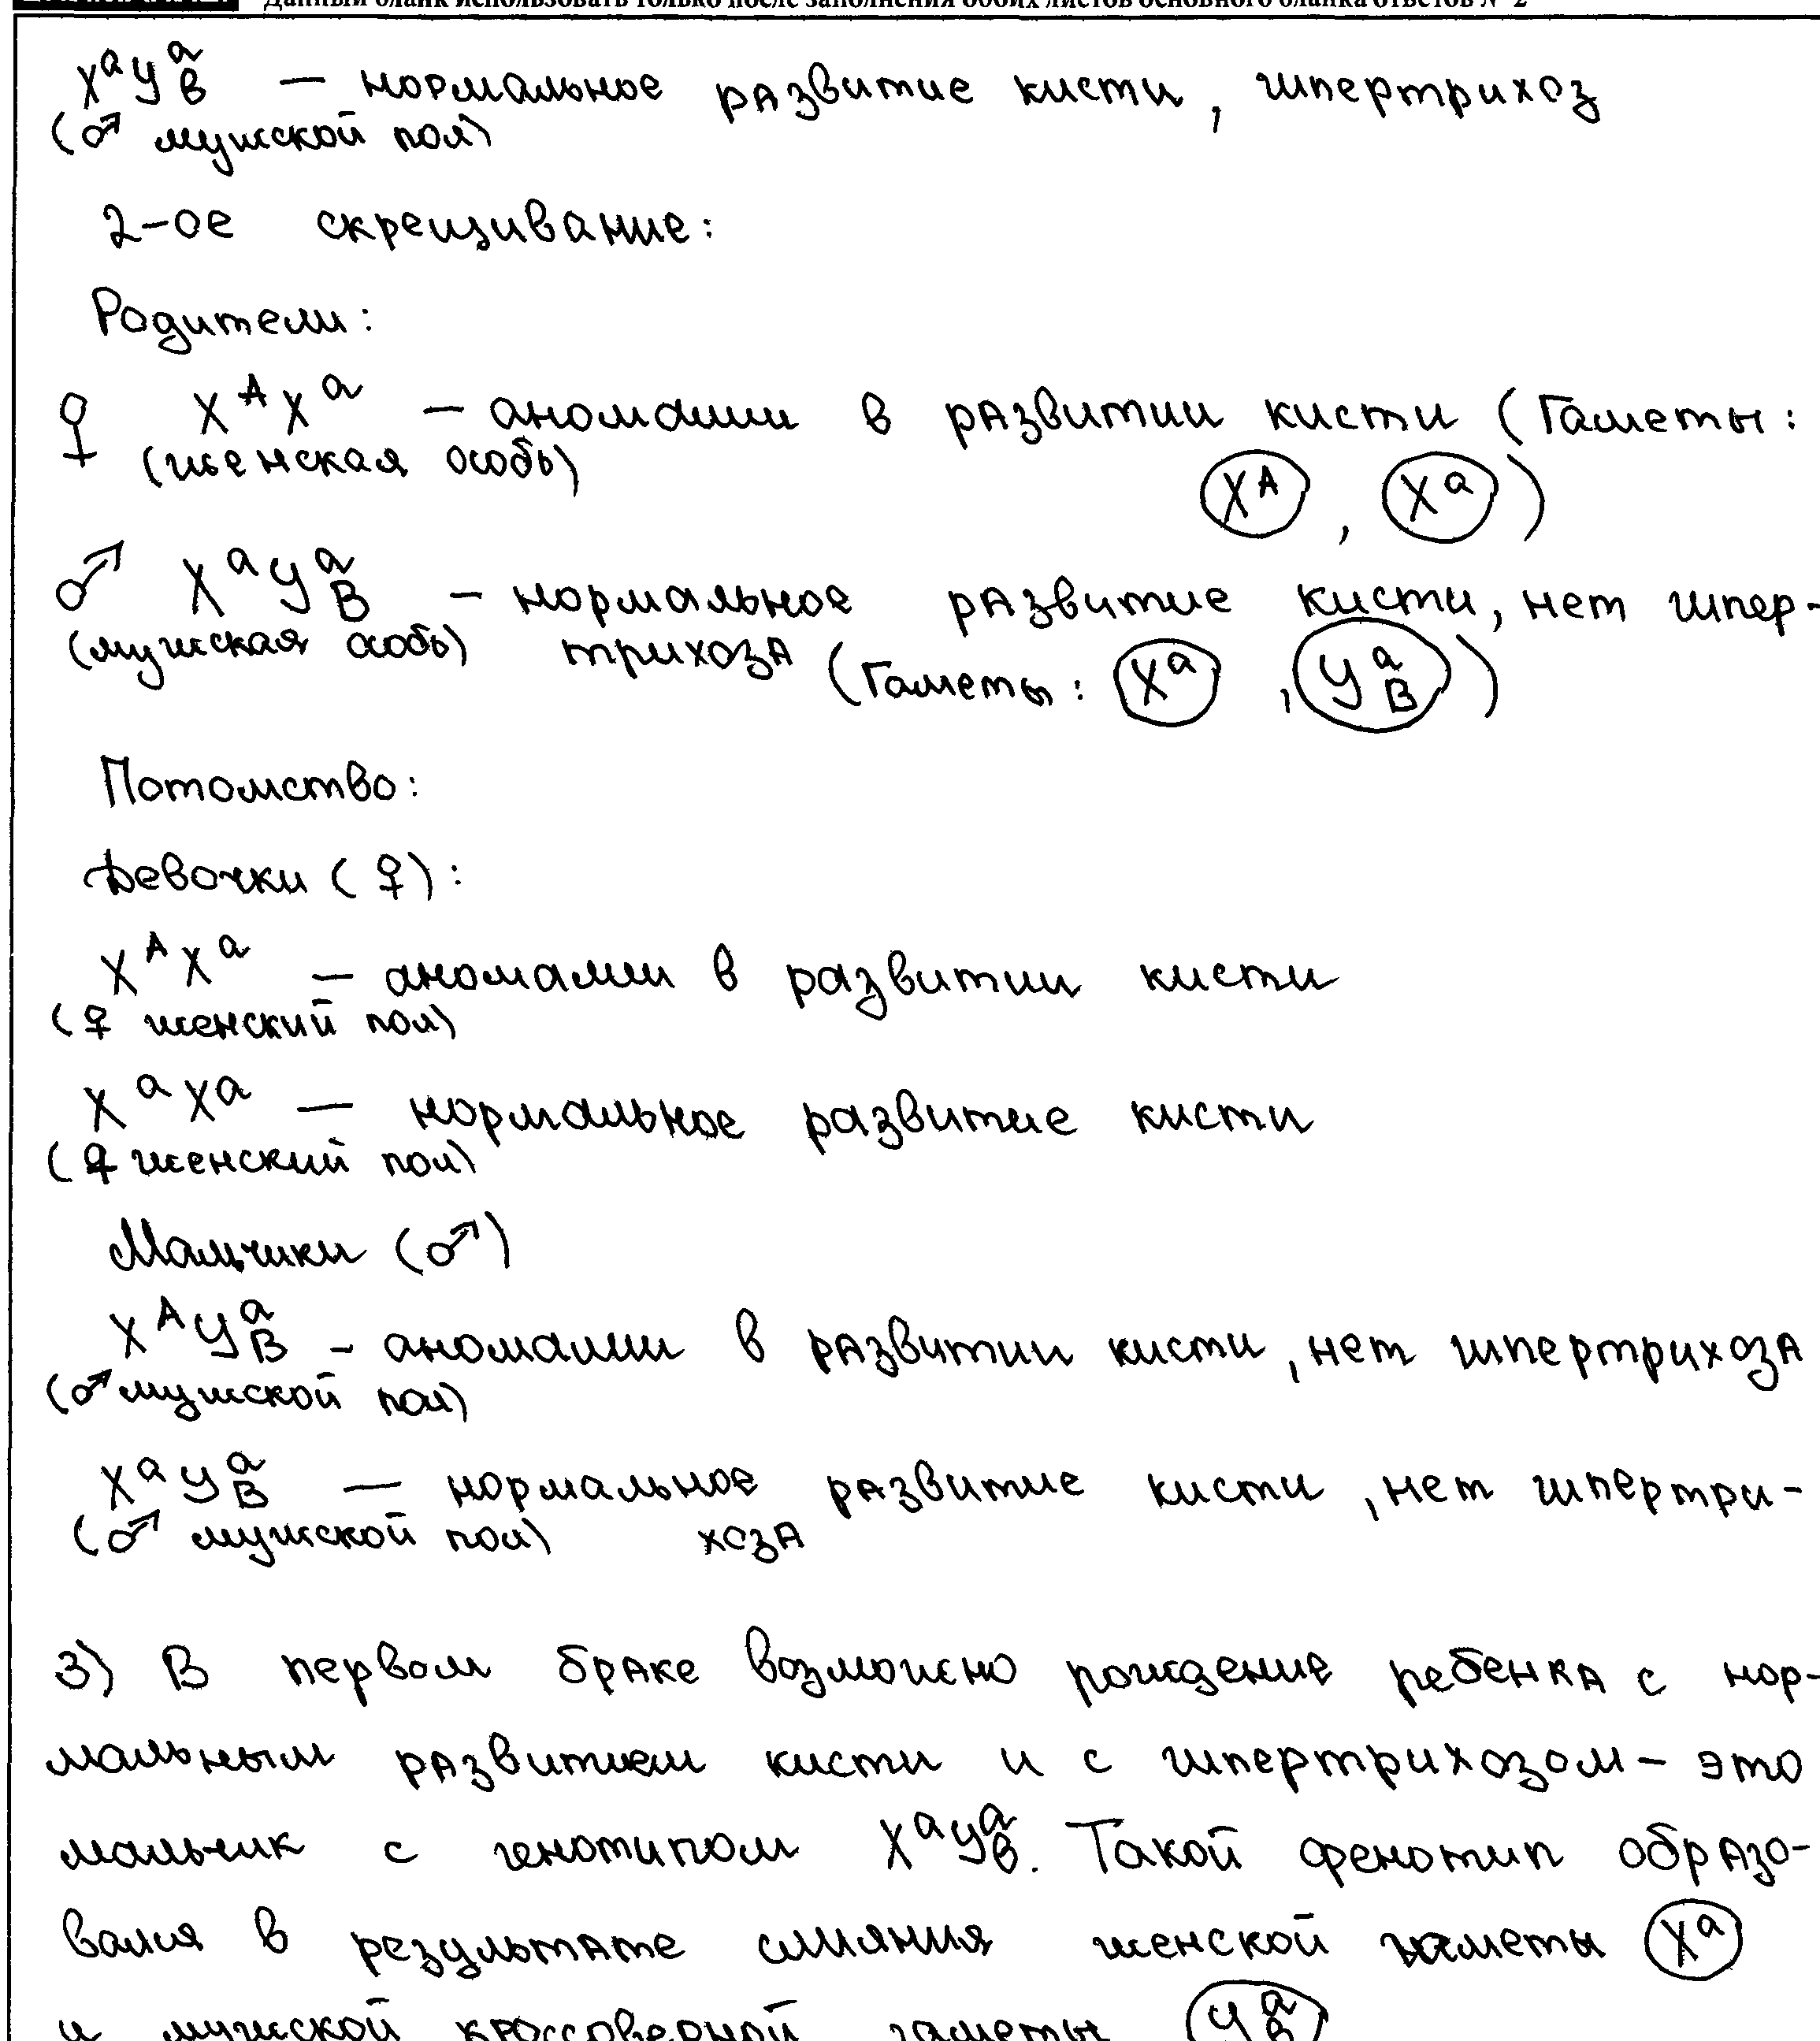 Данный бланк использовать только после заполнения обоих листов основного бланка ответов № 2
XᵃYᵃв — нормальное развитие кисти, гипертрихоз
(♂ мужской пол)
2-ое скрещивание:
Родители:
♀ XᴬXᵃ — аномалии в развитии кисти (Гаметы:
(женская особь)
Xᴬ, Xᵃ)
♂ XᵃYᵃB — нормальное развитие кисти, нет гипер-
(мужская особь) трихоза (Гаметы: Xᵃ, YᵃB)
Потомство:
Девочки (♀):
XᴬXᵃ — аномалии в развитии кисти
(♀ женский пол)
XᵃXᵃ — нормальное развитие кисти
(♀ женский пол)
Мальчики (♂)
XᴬYᵃB - аномалии в развитии кисти, нет гипертрихоза
(♂ мужской пол)
XᵃYᵃB — нормальное развитие кисти, нет гипертри-
(♂ мужской пол) хоза
3) В первом браке возможно рождение ребенка с нор-
мальным развитием кисти и с гипертрихозом - это
мальчик с генотипом XᵃYᵃв. Такой фенотип образо-
вался в результате слияния женской гаметы Xᵃ
и мужской кроссоверной гаметы Yᵃв